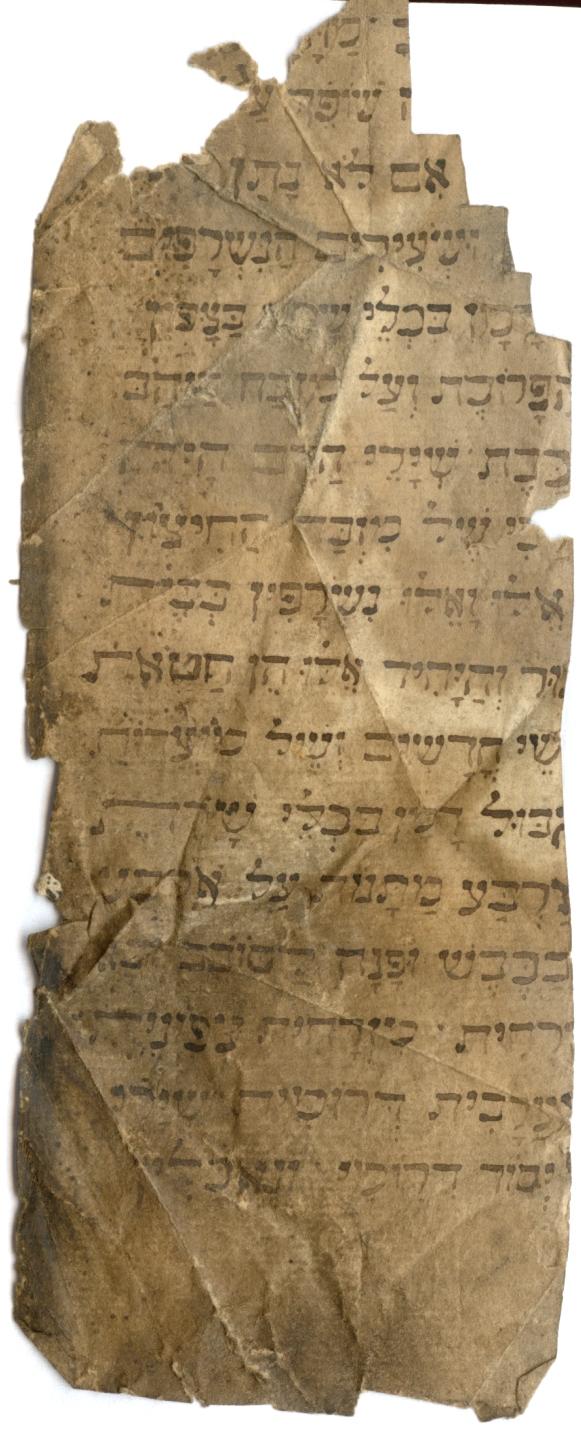 שׁוֹפֵךְ
אִם לֹא נָתַן
וּשְׂעִירִים הַנִּשְׂרָפִים
בִּכְלֵי שָׁרֵת בַּצָּפוֹן
הַפָּרוֹכֶת וְעַל מִזְבַּח הַזָּהָב
שְׁיָרֵי הַדָּם הָיָה
שֶׁל מִזְבֵּחַ הַחִיצוֹן
אֵלּוּ וָאֵלּוּ נִשְׂרָפִין בְּבֵית
וְהַיָּחִיד אֵלּוּ הֵן חַטֹּאת
חֳדָשִׁים וְשֶׁל מוֹעֲדוֹת
קִבּוּל דָּמָן בִּכְלֵי שָׁרֵת
אַרְבַּע מַתָּנוֹת עַל אַרְבַּע
בַכֶּבֶשׁ וּפָנָה לַסּוֹבֵב וּבָא
מִזְרָחִית צְפוֹנִית
דְּרוֹמִית וּשְׁיָרֵי
יְסוֹד דְּרוֹמִי וְנֶאֱכָלִין